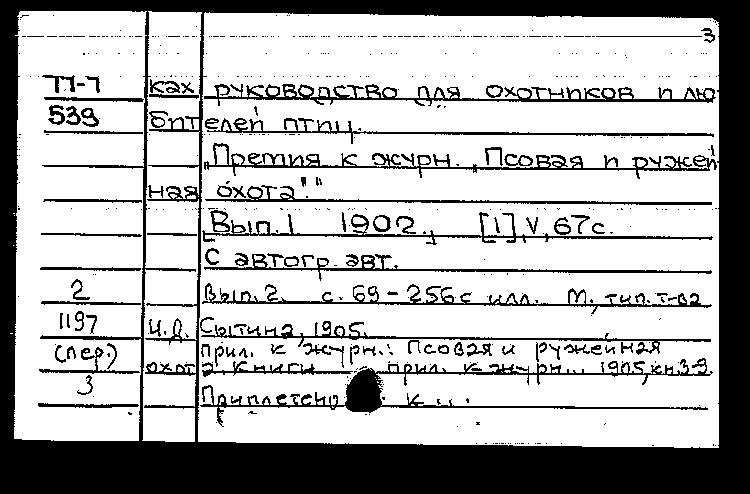 3
П-7 ках руководство для охотников и лю
539 бителей птиц.
„Премия к журн. „Псовая и ружей
ная охота""
[Вып. 1 1902.] [1], V, 67 с.
С автогр. авт.
2 Вып. 2. с. 69-256 с илл. М., тип. т-ва
1197 И.Д. Сытина, 1905.
(пер.) прил. к журн.: Псовая и ружейная
охота. Книги прил. к журн... 1905, кн 3-9.
3 Приплетено к ...